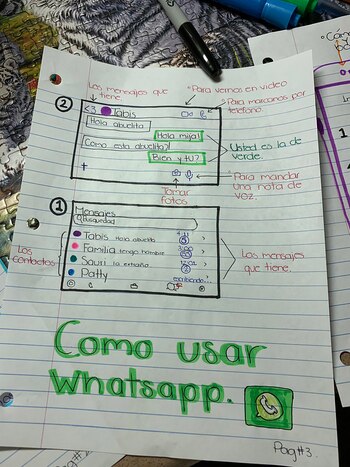 Los mensajes que tiene.
Para vernos en video
Para marcarnos por telefono
②
<3 Tabis
Hola abuelita
Hola mija!
Como esta abuelita?
Bien y tu?
Usted es la de verde.
+
Tomar fotos
Para mandar una nota de voz.
①
Mensajes
Busquedad
Los contactos
Tabis Hola abuelita 4:21
Familia tengo hambre
Sauri la extraño 12:02
Patty escribiendo...
Los mensajes que tiene.
Como usar
Whatsapp.
Pag#3.